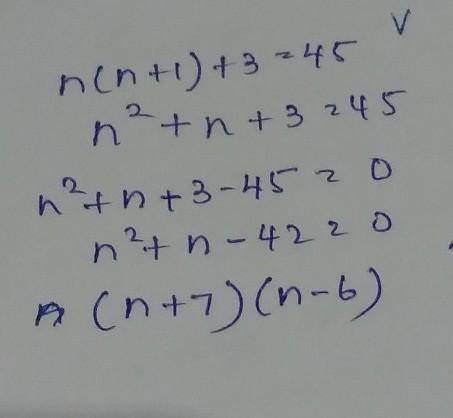 V
n(n+1)+3=45
n²+n+3=45
n²+n+3-45=0
n²+n-42=0
(n+7)(n-6)